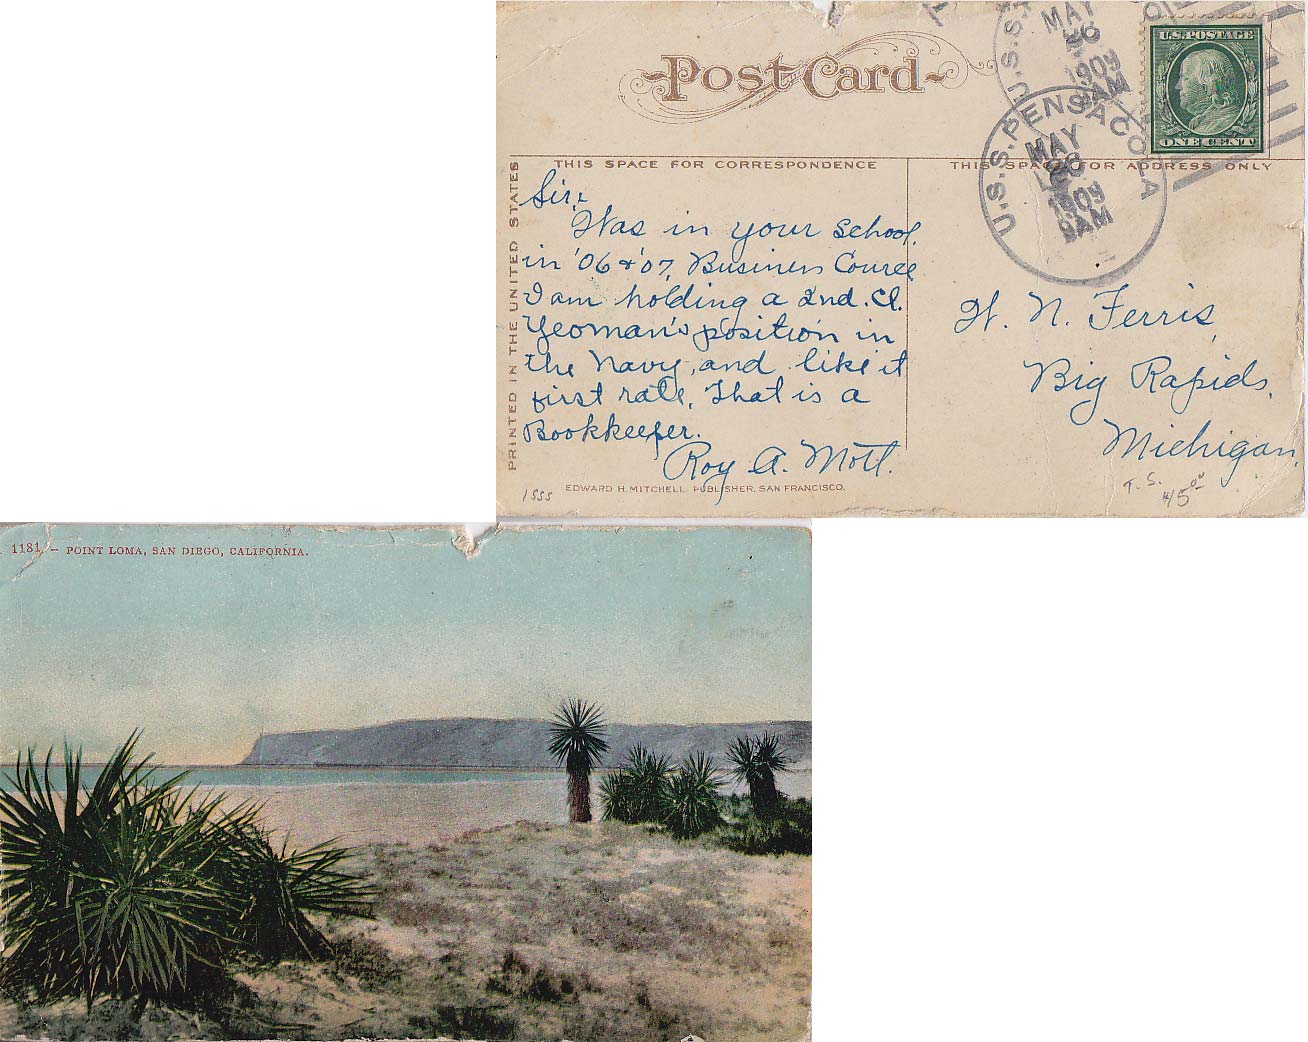 Post Card
U.S. POSTAGE
ONE CENT
MAY
26
1909
9AM
U.S.S. PENSACOLA
MAY
26
1909
9AM
THIS SPACE FOR CORRESPONDENCE
THIS SPACE FOR ADDRESS ONLY
PRINTED IN THE UNITED STATES
Sir:
Was in your School.
in '06 & '07, Business Course
I am holding a 2nd. Cl.
Yeoman's position in
the Navy, and like it
first rate, That is a
Bookkeeper.
Roy A. Mott.
W. N. Ferris,
Big Rapids,
Michigan,
T. S.
EDWARD H. MITCHELL, PUBLISHER, SAN FRANCISCO.
1181 – POINT LOMA, SAN DIEGO, CALIFORNIA.